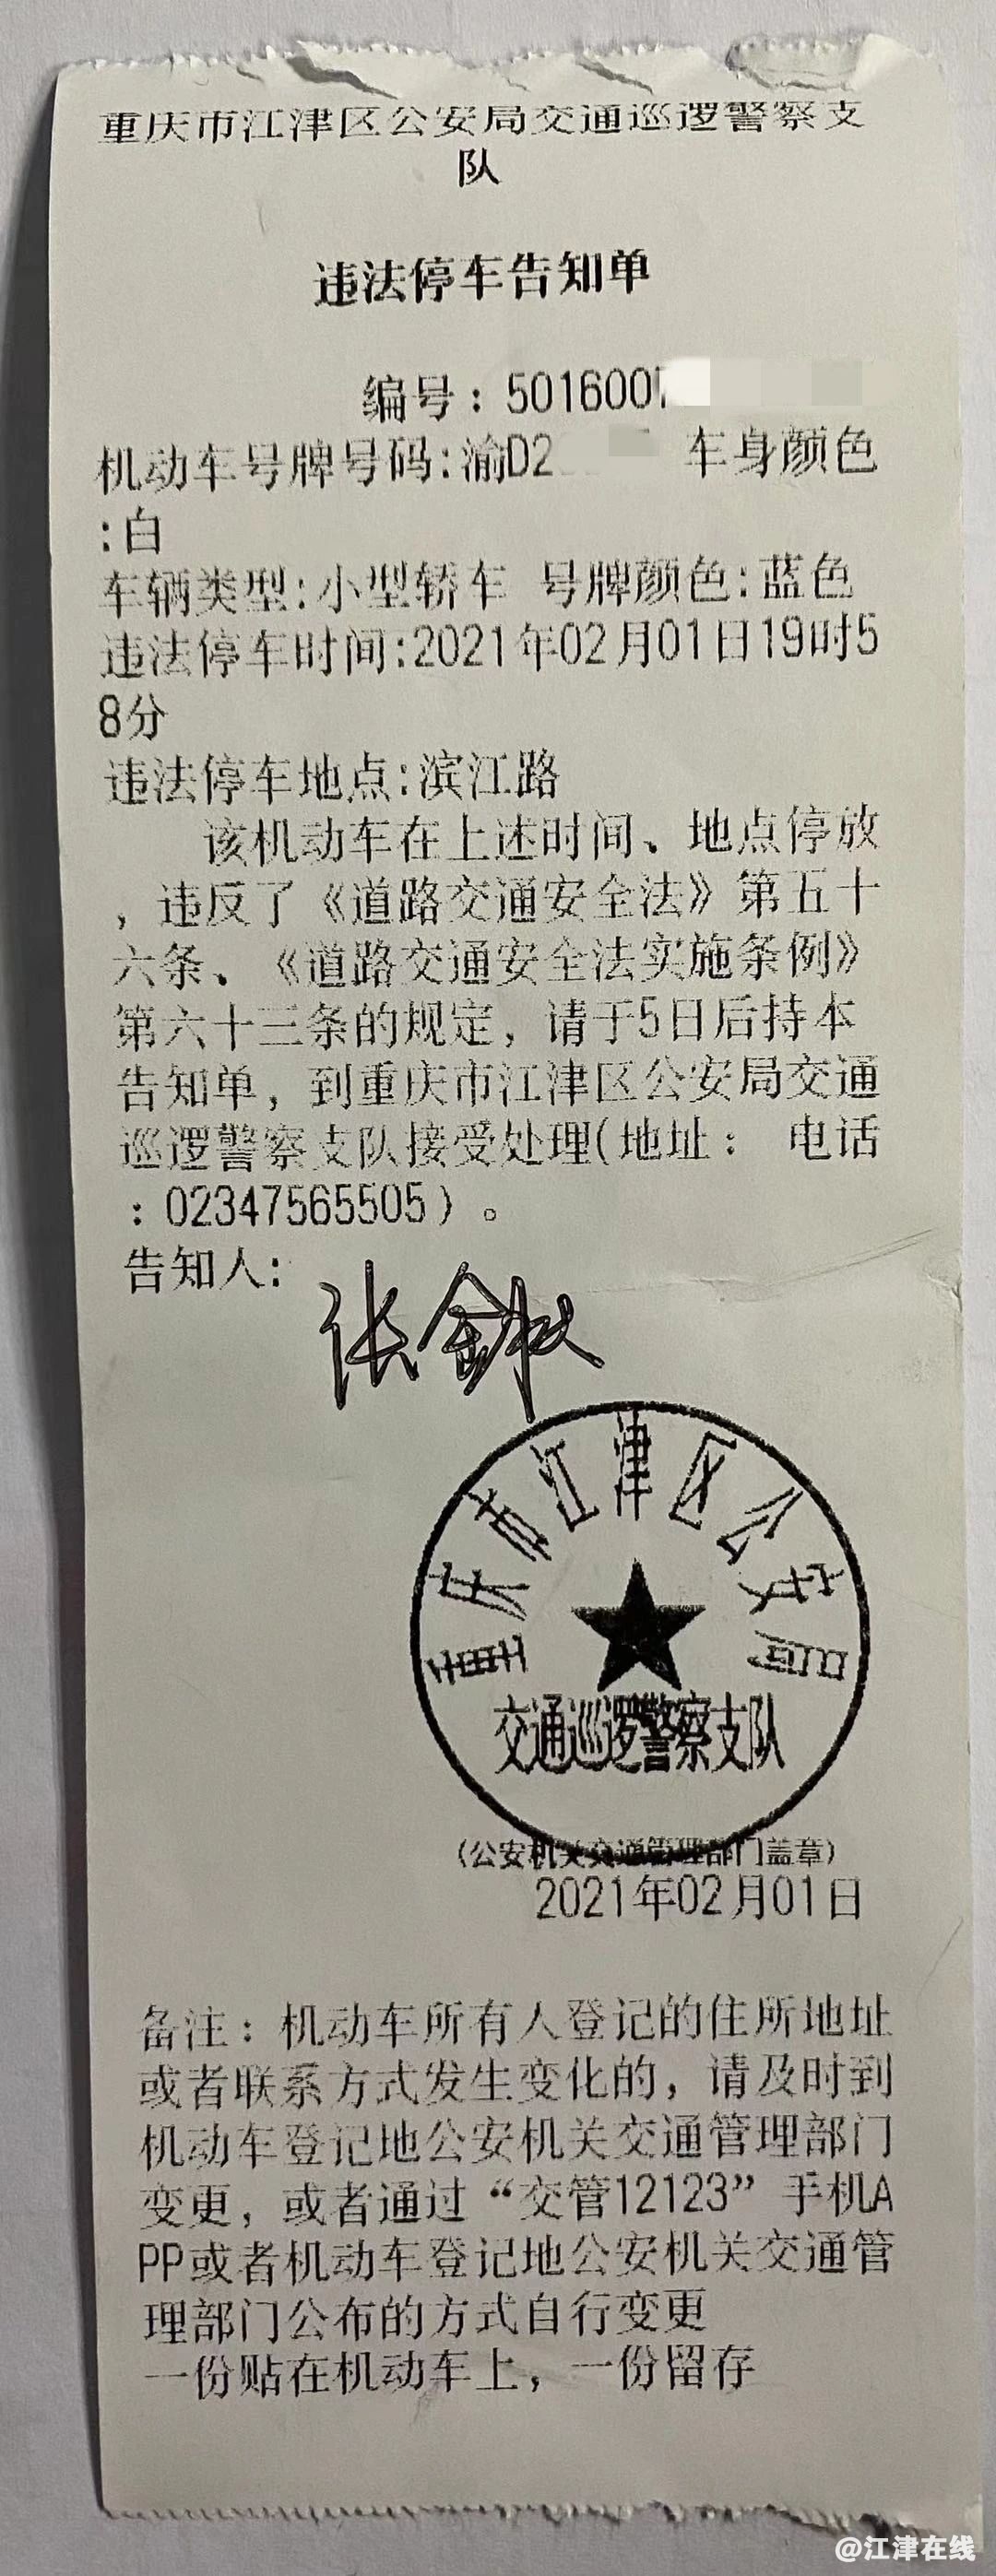 重庆市江津区公安局交通巡逻警察支
队
违法停车告知单
编号：5016007
机动车号牌号码:渝D2 车身颜色
:白
车辆类型:小型轿车 号牌颜色:蓝色
违法停车时间:2021年02月01日19时5
8分
违法停车地点:滨江路
该机动车在上述时间、地点停放
，违反了《道路交通安全法》第五十
六条、《道路交通安全法实施条例》
第六十三条的规定，请于5日后持本
告知单，到重庆市江津区公安局交通
巡逻警察支队接受处理(地址： 电话
：02347565505）。
告知人：
张
重庆市江津区公安局
交通巡逻警察支队
（公安机关交通管理部门盖章）
2021年02月01日
备注：机动车所有人登记的住所地址
或者联系方式发生变化的，请及时到
机动车登记地公安机关交通管理部门
变更，或者通过“交管12123”手机A
PP或者机动车登记地公安机关交通管
理部门公布的方式自行变更
一份贴在机动车上，一份留存
@江津在线